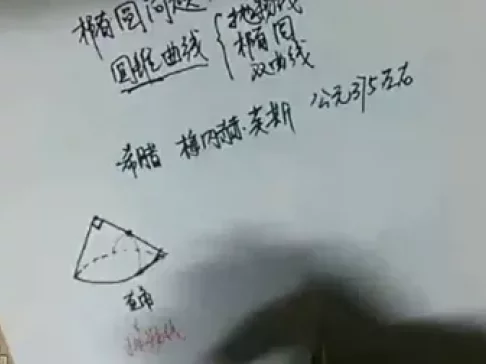 椭圆问题
抛物线
圆锥曲线 椭圆
双曲线
希腊 梅内赫莫斯 公元375左右
直角
抛物线